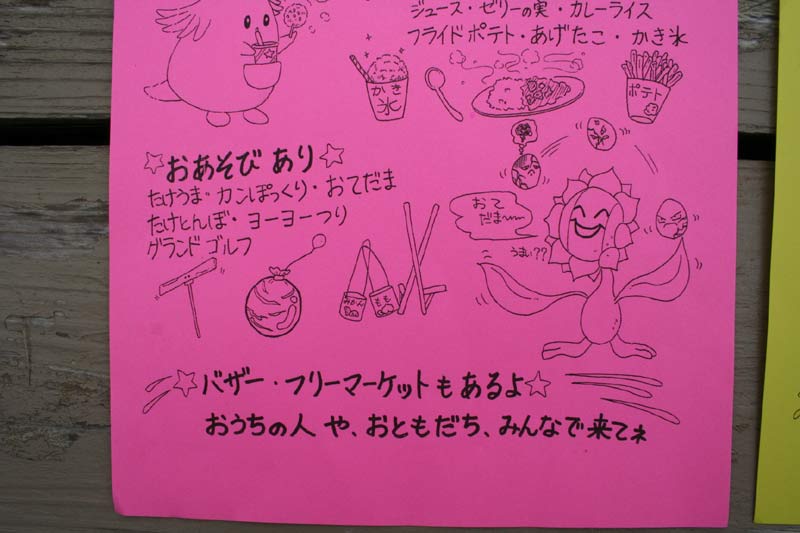 ジュース・ゼリーの実・カレーライス
フライドポテト・あげたこ・かき氷
かき
氷
ポテト
☆おあそび あり☆
たけうま・カンぽっくり・おてだま
たけとんぼ・ヨーヨーつり
グランド ゴルフ
おて
だま〜〜
うまい??
みかん
もも
☆バザー・フリーマーケットもあるよ☆
おうちの人 や、おともだち、みんなで来てネ